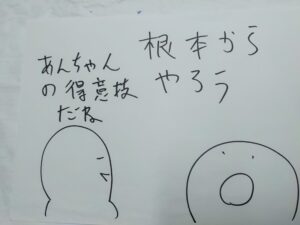 あんちゃん
の得意技
だね
根本から
やろう